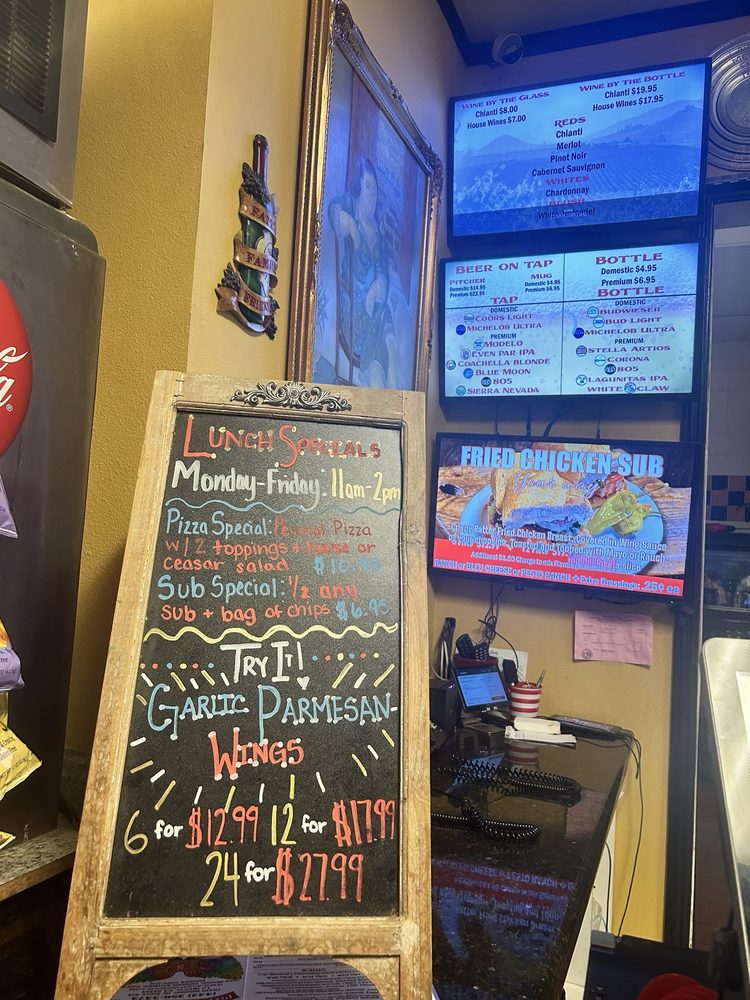 LUNCH SPECIALS
Monday-Friday: 11am-2pm
Pizza Special: Personal Pizza
w/ 2 toppings + house or
ceasar salad $10
Sub Special: 1/2 any
sub + bag of chips $6.95
TRY IT!
GARLIC PARMESAN
WINGS
6 for $12.99 12 for $17.99
24 for $27.99
WINE BY THE GLASS
Chianti $8.00
House Wines $7.00
WINE BY THE BOTTLE
Chianti $19.95
House Wines $17.95
REDS
Chianti
Merlot
Pinot Noir
Cabernet Sauvignon
WHITES
Chardonnay
BLUSH
BEER ON TAP
PITCHER
Domestic $14.95
Premium $22.95
MUG
Domestic $4.95
Premium $6.95
TAP
DOMESTIC
COORS LIGHT
MICHELOB ULTRA
PREMIUM
MODELO
EVEN PAR IPA
COACHELLA BLONDE
BLUE MOON
805
SIERRA NEVADA
BOTTLE
Domestic $4.95
Premium $6.95
BOTTLE
DOMESTIC
BUDWIESER
BUD LIGHT
MICHELOB ULTRA
PREMIUM
STELLA ARTIOS
CORONA
805
LAGUNITAS IPA
WHITE CLAW
FRIED CHICKEN SUB
Your way
Crispy Batter Fried Chicken Breast, Covered in Wing Sauce
of your choosing, Toasted and Topped with Mayo or Ranch,
slice
RANCH or BLEU CHEESE or PESTO RANCH + Extra Dressings: .25¢ ea